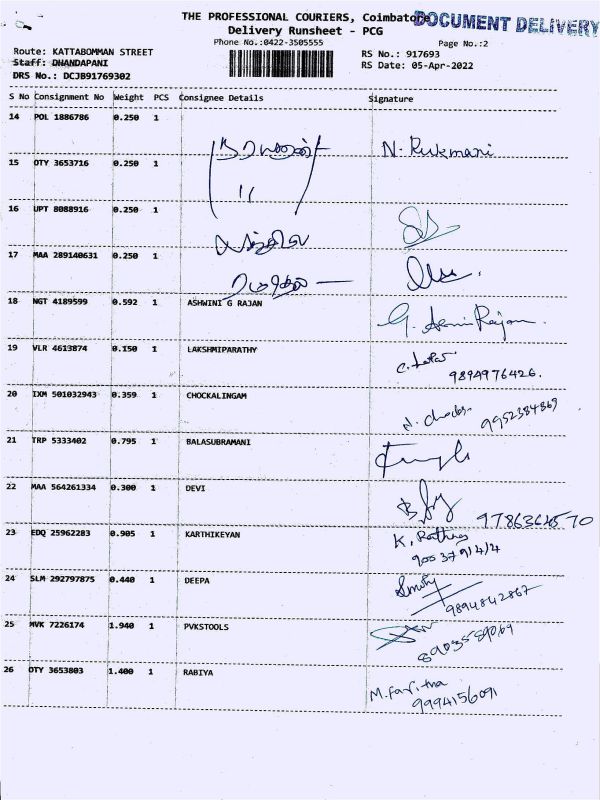 THE PROFESSIONAL COURIERS, Coimbatore
DOCUMENT DELIVERY
Delivery Runsheet - PCG
Phone No.:0422-3505555
Page No.:2
Route: KATTABOMMAN STREET
RS No.: 917693
Staff: DHANDAPANI
RS Date: 05-Apr-2022
DRS No.: DCJB91769302
S No Consignment No Weight PCS Consignee Details Signature
14 POL 1886786 0.250 1
N. Rukmani
15 OTY 3653716 0.250 1
16 UPT 8088916 0.250 1
17 MAA 289140631 0.250 1
18 NGT 4189599 0.592 1 ASHWINI G RAJAN
19 VLR 4613874 0.150 1 LAKSHMIPARATHY
9894976426.
20 IXM 501032943 0.359 1 CHOCKALINGAM
9952384869
21 TRP 5333402 0.795 1 BALASUBRAMANI
22 MAA 564261334 0.300 1 DEVI
23 EDQ 25962283 0.905 1 KARTHIKEYAN
24 SLM 292797875 0.440 1 DEEPA
9894842867
25 MVK 7226174 1.940 1 PVKSTOOLS
26 OTY 3653803 1.400 1 RABIYA
9994156091